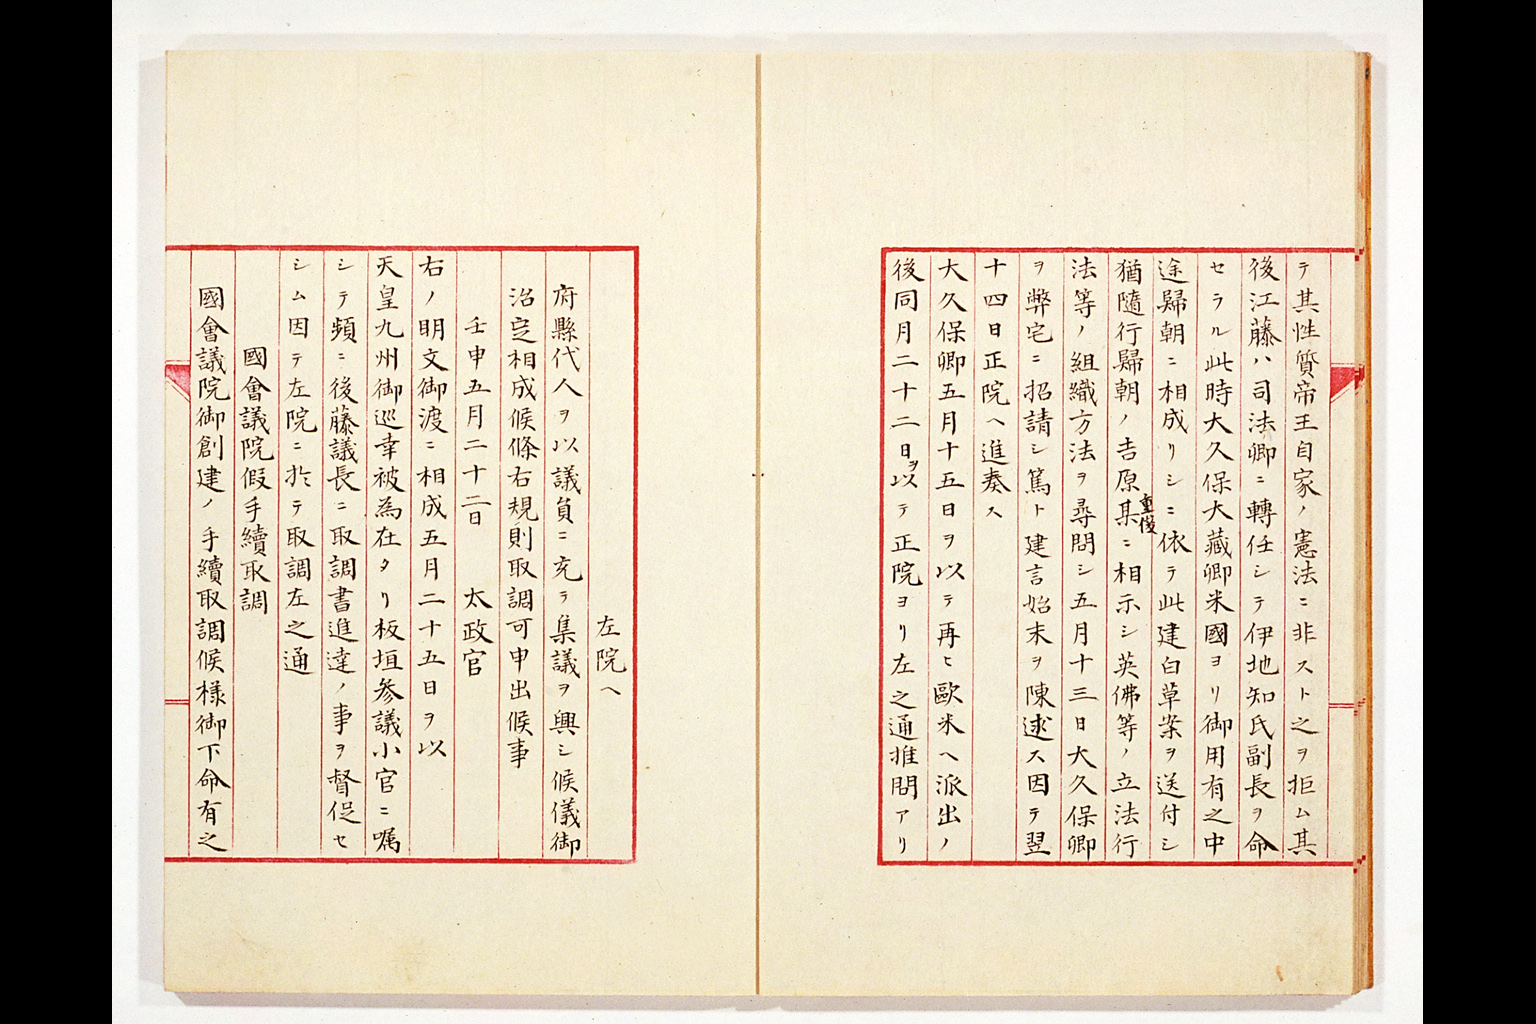 テ其性質帝王自家ノ憲法ニ非スト之ヲ拒ム其
後江藤ハ司法卿ニ轉任シテ伊地知氏副長ヲ命
セラル此時大久保大藏卿米國ヨリ御用有之中
途歸朝ニ相成リシニ依テ此建白草案ヲ送付シ
猶隨行歸朝ノ吉原某重俊ニ相示シ英佛等ノ立法行
法等ノ組織方法ヲ尋問シ五月十三日大久保卿
ヲ弊宅ニ招請シ篤ト建言始末ヲ陳述ス因テ翌
十四日正院ヘ進奏ス
大久保卿五月十五日ヲ以テ再ヒ歐米ヘ派出ノ
後同月二十二日ヲ以テ正院ヨリ左之通推問アリ
左院ヘ
府縣代人ヲ以議員ニ充ラ集議ヲ興シ候儀御
治定相成候條右規則取調可申出候事
壬申五月二十二日 太政官
右ノ明文御渡ニ相成五月二十五日ヲ以
天皇九州御巡幸被為在タリ板垣参議小官ニ嘱
シテ頻ニ後藤議長ニ取調書進達ノ事ヲ督促セ
シム因テ左院ニ於テ取調左之通
國會議院假手續取調
國會議院御創建ノ手續取調候様御下命有之